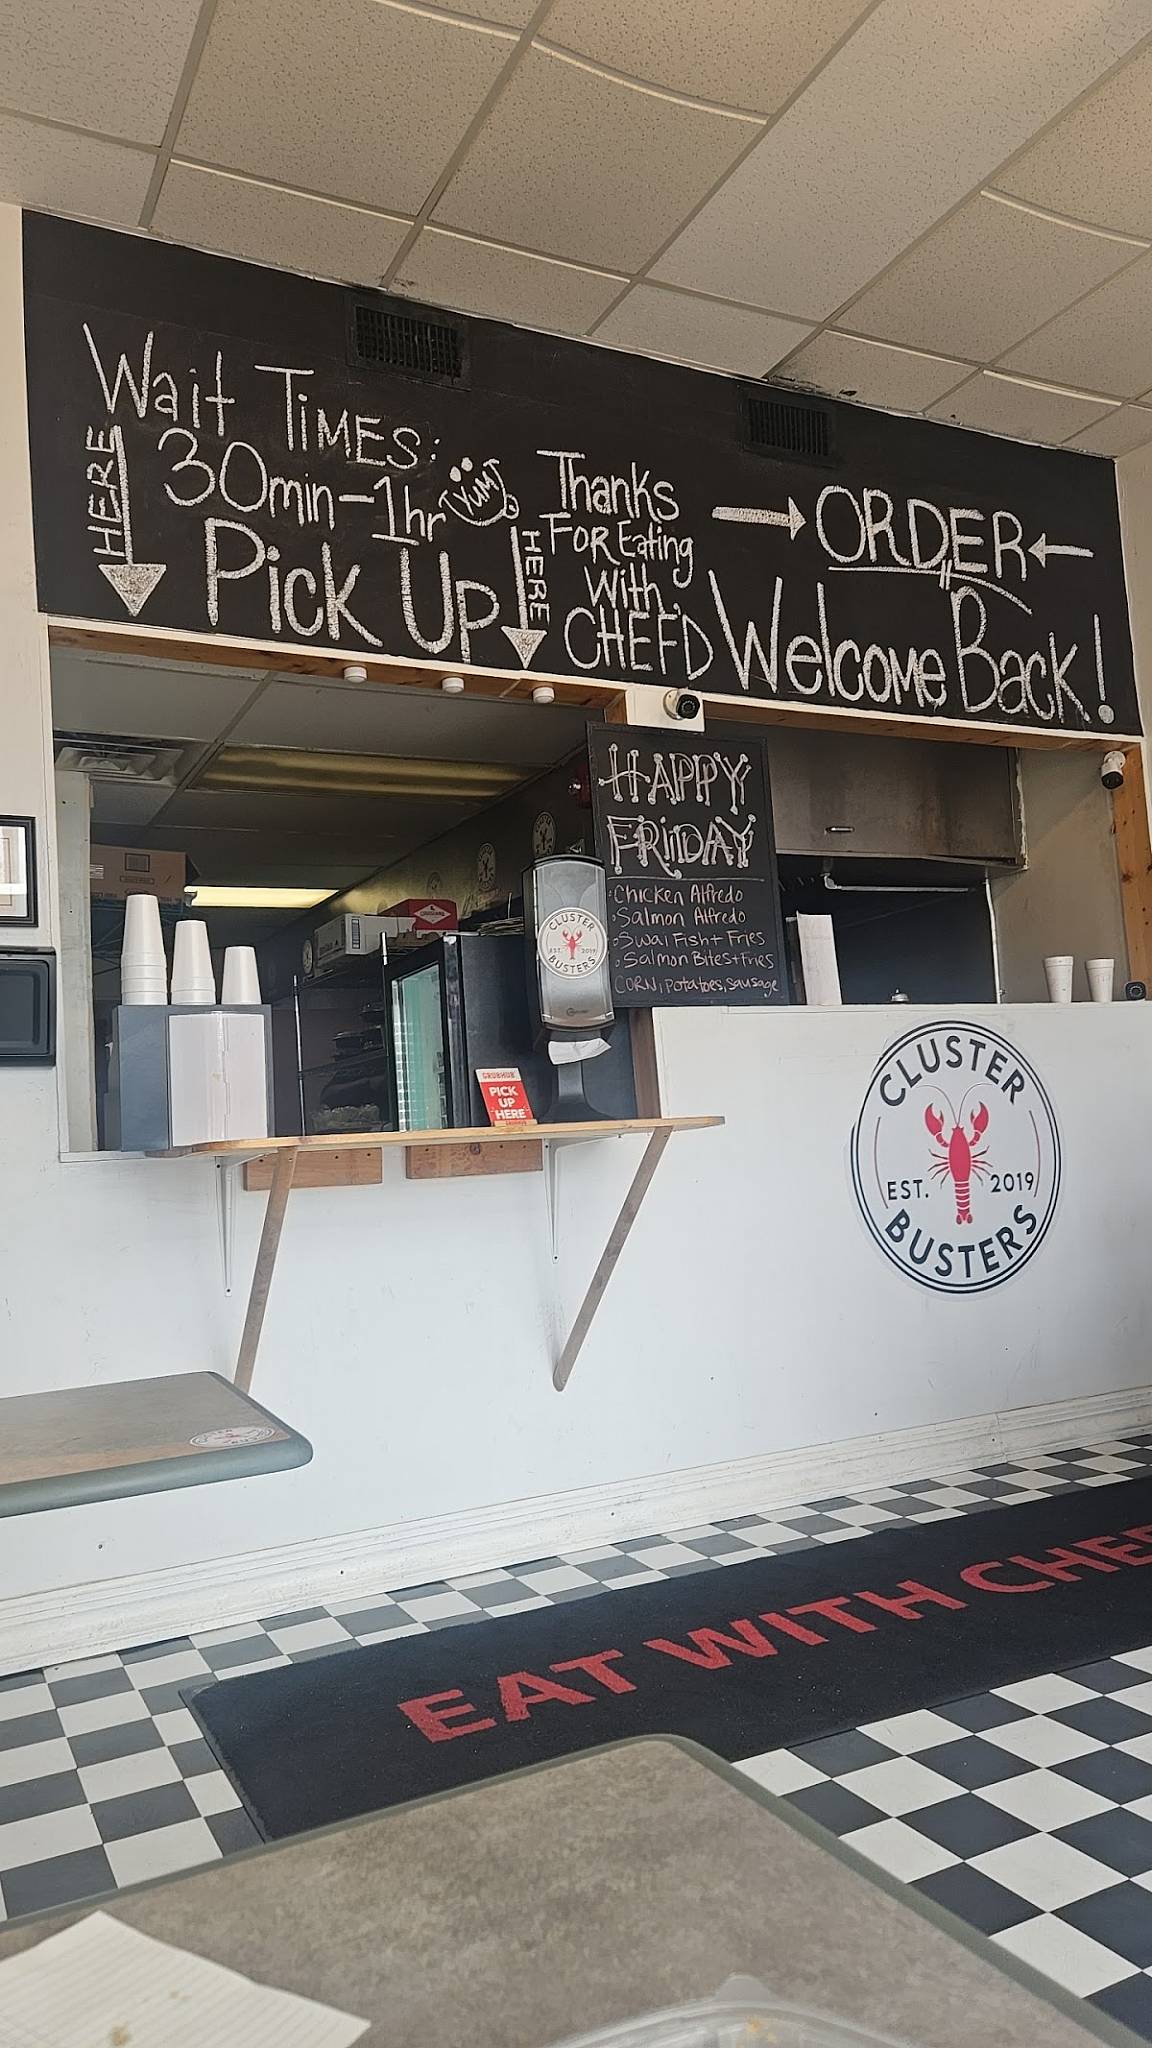 Wait TiMES:
30min-1hr
YUM
HERE
Pick Up
HERE
Thanks
FOR Eating
With
CHEFD
ORDER
Welcome Back!
HAPPY
FRIDAY
Chicken Alfredo
Salmon Alfredo
Swai Fish + Fries
Salmon Bites + Fries
CORN, Potatoes, Sausage
CLUSTER
EST. 2019
BUSTERS
GRUBHUB
PICK
UP
HERE
GRUBHUB
CLUSTER
EST. 2019
BUSTERS
EAT WITH CHEF